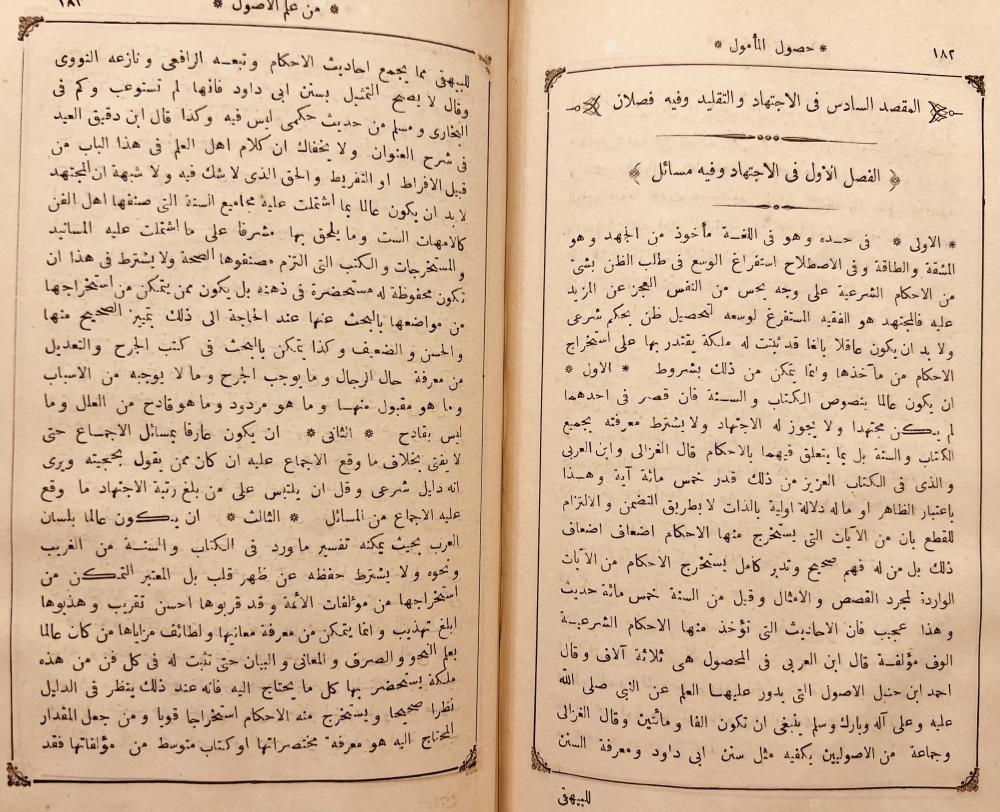 ١٨٢
* حصول المأمول *
المقصد السادس فى الاجتهاد والتقليد وفيه فصلان
الفصل الاول فى الاجتهاد وفيه مسائل
* الاولى * فى حده وهو فى اللغة مأخوذ من الجهد وهو
المشقة والطاقة وفى الاصطلاح استفراغ الوسع فى طلب الظن بشئ
من الاحكام الشرعية على وجه يحس من النفس العجز عن المزيد
عليه فالمجتهد هو الفقيه المستفرغ لوسعه لتحصيل ظن بحكم شرعى
ولا بد ان يكون عاقلا بالغا قد ثبتت له ملكة يقتدر بها على استخراج
الاحكام من مآخذها وانما يتمكن من ذلك بشروط * الاول *
ان يكون عالما بنصوص الكتاب والسنة فان قصر فى احدهما
لم يكن مجتهدا ولا يجوز له الاجتهاد ولا يشترط معرفته بجميع
الكتاب والسنة بل بما يتعلق فيهما بالاحكام قال الغزالى وابن العربى
والذى فى الكتاب العزيز من ذلك قدر خمس مائة آية وهذا
باعتبار الظاهر او ماله دلالة اولية بالذات لا بطريق التضمن والالتزام
للقطع بان من الآيات التى يستخرج منها الاحكام اضعاف اضعاف
ذلك بل من له فهم صحيح وتدبر كامل يستخرج الاحكام من الآيات
الواردة لمجرد القصص والامثال وقيل من السنة خمس مائة حديث
وهذا عجيب فان الاحاديث التى تؤخذ منها الاحكام الشرعية
الوف مؤلفة قال ابن العربى فى المحصول هى ثلاثة آلاف وقال
احمد ابن حنبل الاصول التى يدور عليها العلم عن النبى صلى الله
عليه وعلى آله وبارك وسلم ينبغى ان تكون الفا ومأتين وقال الغزالى
وجماعة من الاصوليين يكفيه مثل سنن ابى داود ومعرفة السنن
للبيهقى
* من علم الاصول *
١٨٣
للبيهقى مما يجمع احاديث الاحكام وتبعه الرافعى ونازعه النووى
وقال لا يصح التمثيل بسنن ابى داود فانها لم تستوعب وكم فى
البخارى ومسلم من حديث حكمى ليس فيه وكذا قال ابن دقيق العيد
فى شرح العنوان ولا يخفاك ان كلام اهل العلم فى هذا الباب من
قبيل الافراط او التفريط والحق الذى لا شك فيه ولا شبهة ان المجتهد
لا بد ان يكون عالما بما اشتملت عليه مجاميع السنة التى صنفها اهل الفن
كالامهات الست وما يلحق بها مشرفا على ما اشتملت عليه المسانيد
والمستخرجات والكتب التى التزم مصنفوها الصحة ولا يشترط فى هذا ان
تكون محفوظة له مستحضرة فى ذهنه بل يكون ممن يتمكن من استخراجها
من مواضعها بالبحث عنها عند الحاجة الى ذلك بتمييز الصحيح منها
والحسن والضعيف وكذا يتمكن بالبحث فى كتب الجرح والتعديل
من معرفة حال الرجال وما يوجب الجرح وما لا يوجبه من الاسباب
وما هو مقبول منها وما هو مردود وما هو قادح من العلل وما
ليس بقادح * الثانى * ان يكون عارفا بمسائل الاجماع حتى
لا يفتى بخلاف ما وقع الاجماع عليه ان كان ممن يقول بحجيته ويرى
انه دليل شرعى وقل ان يلتبس على من بلغ رتبة الاجتهاد ما وقع
عليه الاجماع من المسائل * الثالث * ان يكون عالما بلسان
العرب بحيث يمكنه تفسير ما ورد فى الكتاب والسنة من الغريب
ونحوه ولا يشترط حفظه عن ظهر قلب بل المعتبر التمكن من
استخراجها من مؤلفات الائمة وقد قربوها احسن تقريب وهذبوها
ابلغ تهذيب وانما يتمكن من معرفة معانيها ولطائف مزاياها من كان عالما
بعلم النحو والصرف والمعانى والبيان حتى تثبت له فى كل فن من هذه
ملكة يستحضر بها كل ما يحتاج اليه فانه عند ذلك ينظر فى الدليل
نظرا صحيحا ويستخرج منه الاحكام استخراجا قويا ومن جعل المقدار
المحتاج اليه هو معرفة مختصراتها او كتاب متوسط من مؤلفاتها فقد